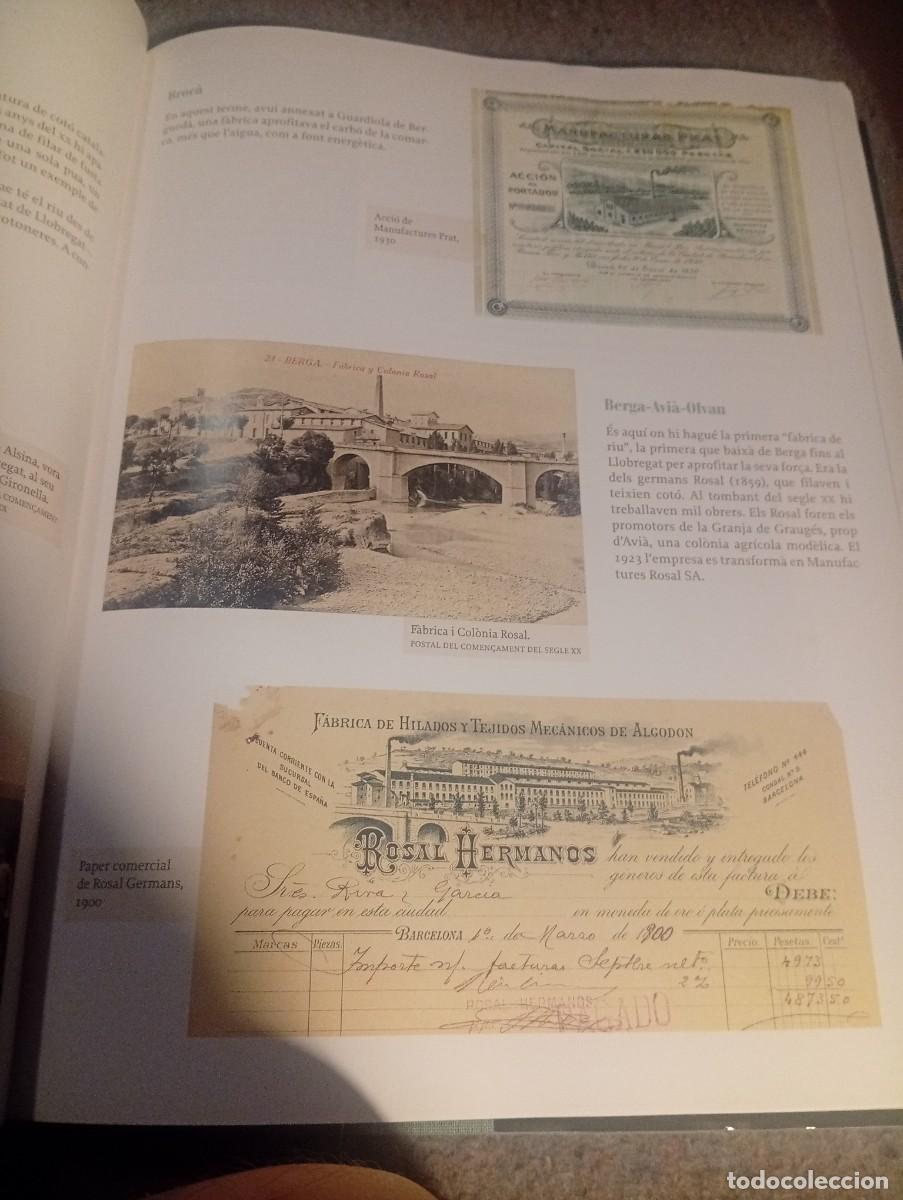 tura de cotó catala
anys del xx hi apa
na de filar de fusta
una sola pua, un
Tot un exemple de
ue té el riu des de
at de Llobregat
otoneres. A con
Alsina, vora
egat, al seu
Gironella.
COMENÇAMENT
XX
Brocà
En aquest terme, avui annexat a Guardiola de Ber-
guedà, una fàbrica aprofitava el carbó de la comar-
ca, més que l'aigua, com a font energètica.
Acció de
Manufactures Prat,
1930
MANUFACTURAS PRAT
CAPITAL SOCIAL PESETAS
ACCIÓN
AL
PORTADOR
21 - BERGA. - Fábrica y Colonia Rosal
Fàbrica i Colònia Rosal.
POSTAL DEL COMENÇAMENT DEL SEGLE XX
Berga-Avià-Olvan
És aquí on hi hagué la primera "fàbrica de
riu", la primera que baixà de Berga fins al
Llobregat per aprofitar la seva força. Era la
dels germans Rosal (1859), que filaven i
teixien cotó. Al tombant del segle xx hi
treballaven mil obrers. Els Rosal foren els
promotors de la Granja de Graugés, prop
d'Avià, una colònia agrícola modèlica. El
1923 l'empresa es transformà en Manufac
tures Rosal SA.
Paper comercial
de Rosal Germans,
1900
FÁBRICA DE HILADOS Y TEJIDOS MECÁNICOS DE ALGODON
CUENTA CORRIENTE CON LA
SUCURSAL
DEL BANCO DE ESPAÑA
TELÉFONO Nº 444
CONDAL Nº
BARCELONA
ROSAL HERMANOS han vendido y entregado los
géneros de esta factura á
Sres. Riva y García DEBE:
para pagar en esta ciudad en moneda de oro ó plata precisamente
BARCELONA 1º de Marzo de 1900
Marcas Piezas Precio Pesetas Centº
Importe n/. facturas Septbre neto 4973
2% 99 50
4873 50
ROSAL HERMANOS
todocoleccion